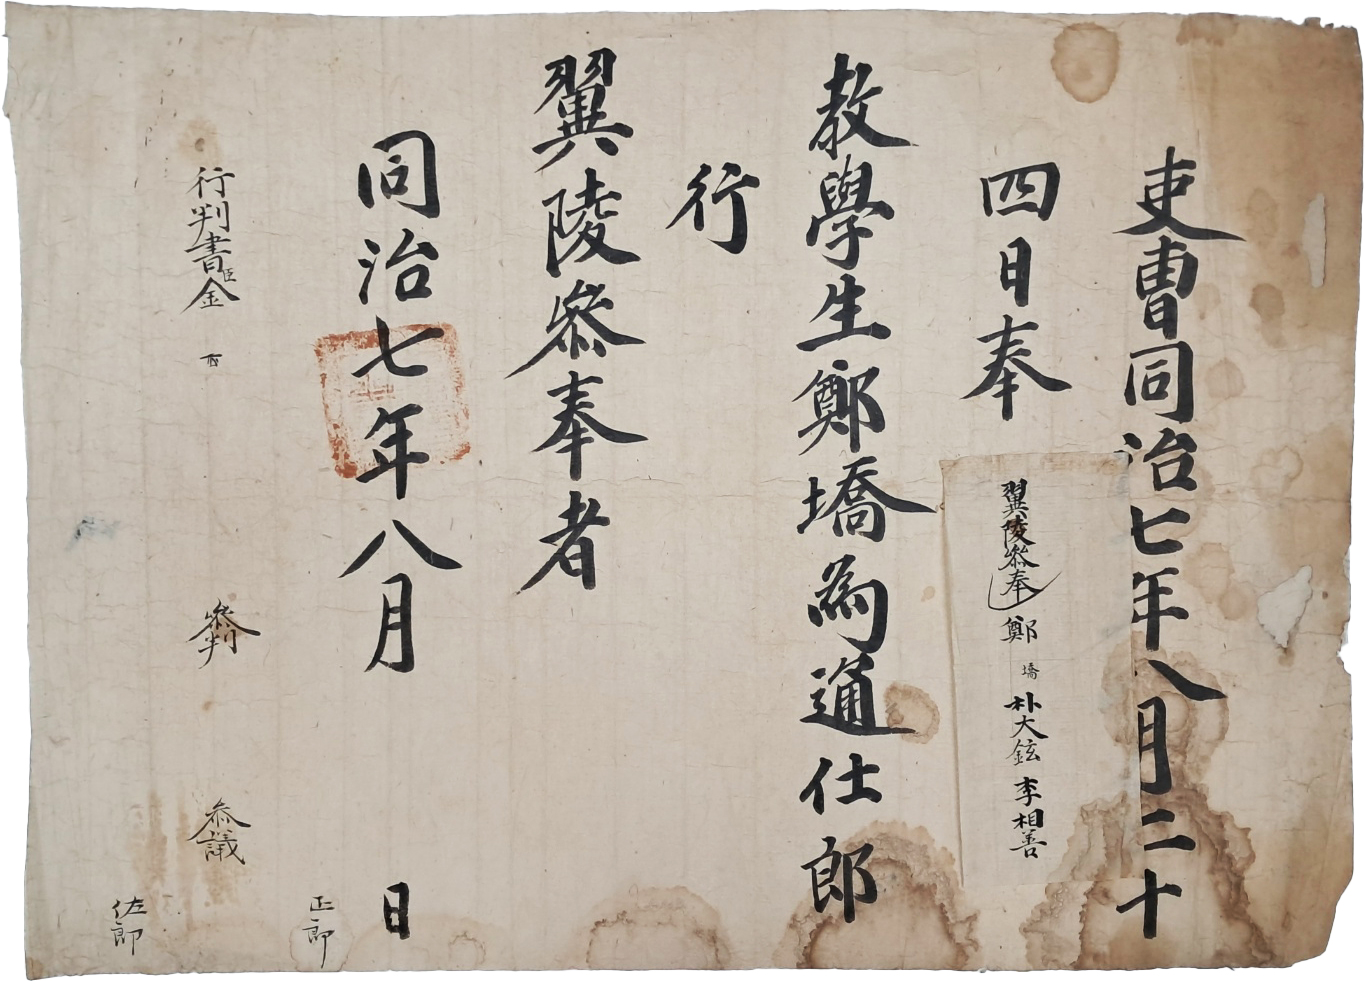 吏曹同治七年八月二十
四日奉
翼陵叅奉 鄭墧 朴大鉉 李相善
教學生鄭墧為通仕郎
行
翼陵叅奉者
同治七年八月 日
正郎
行判書臣金
叅判
叅議
佐郎